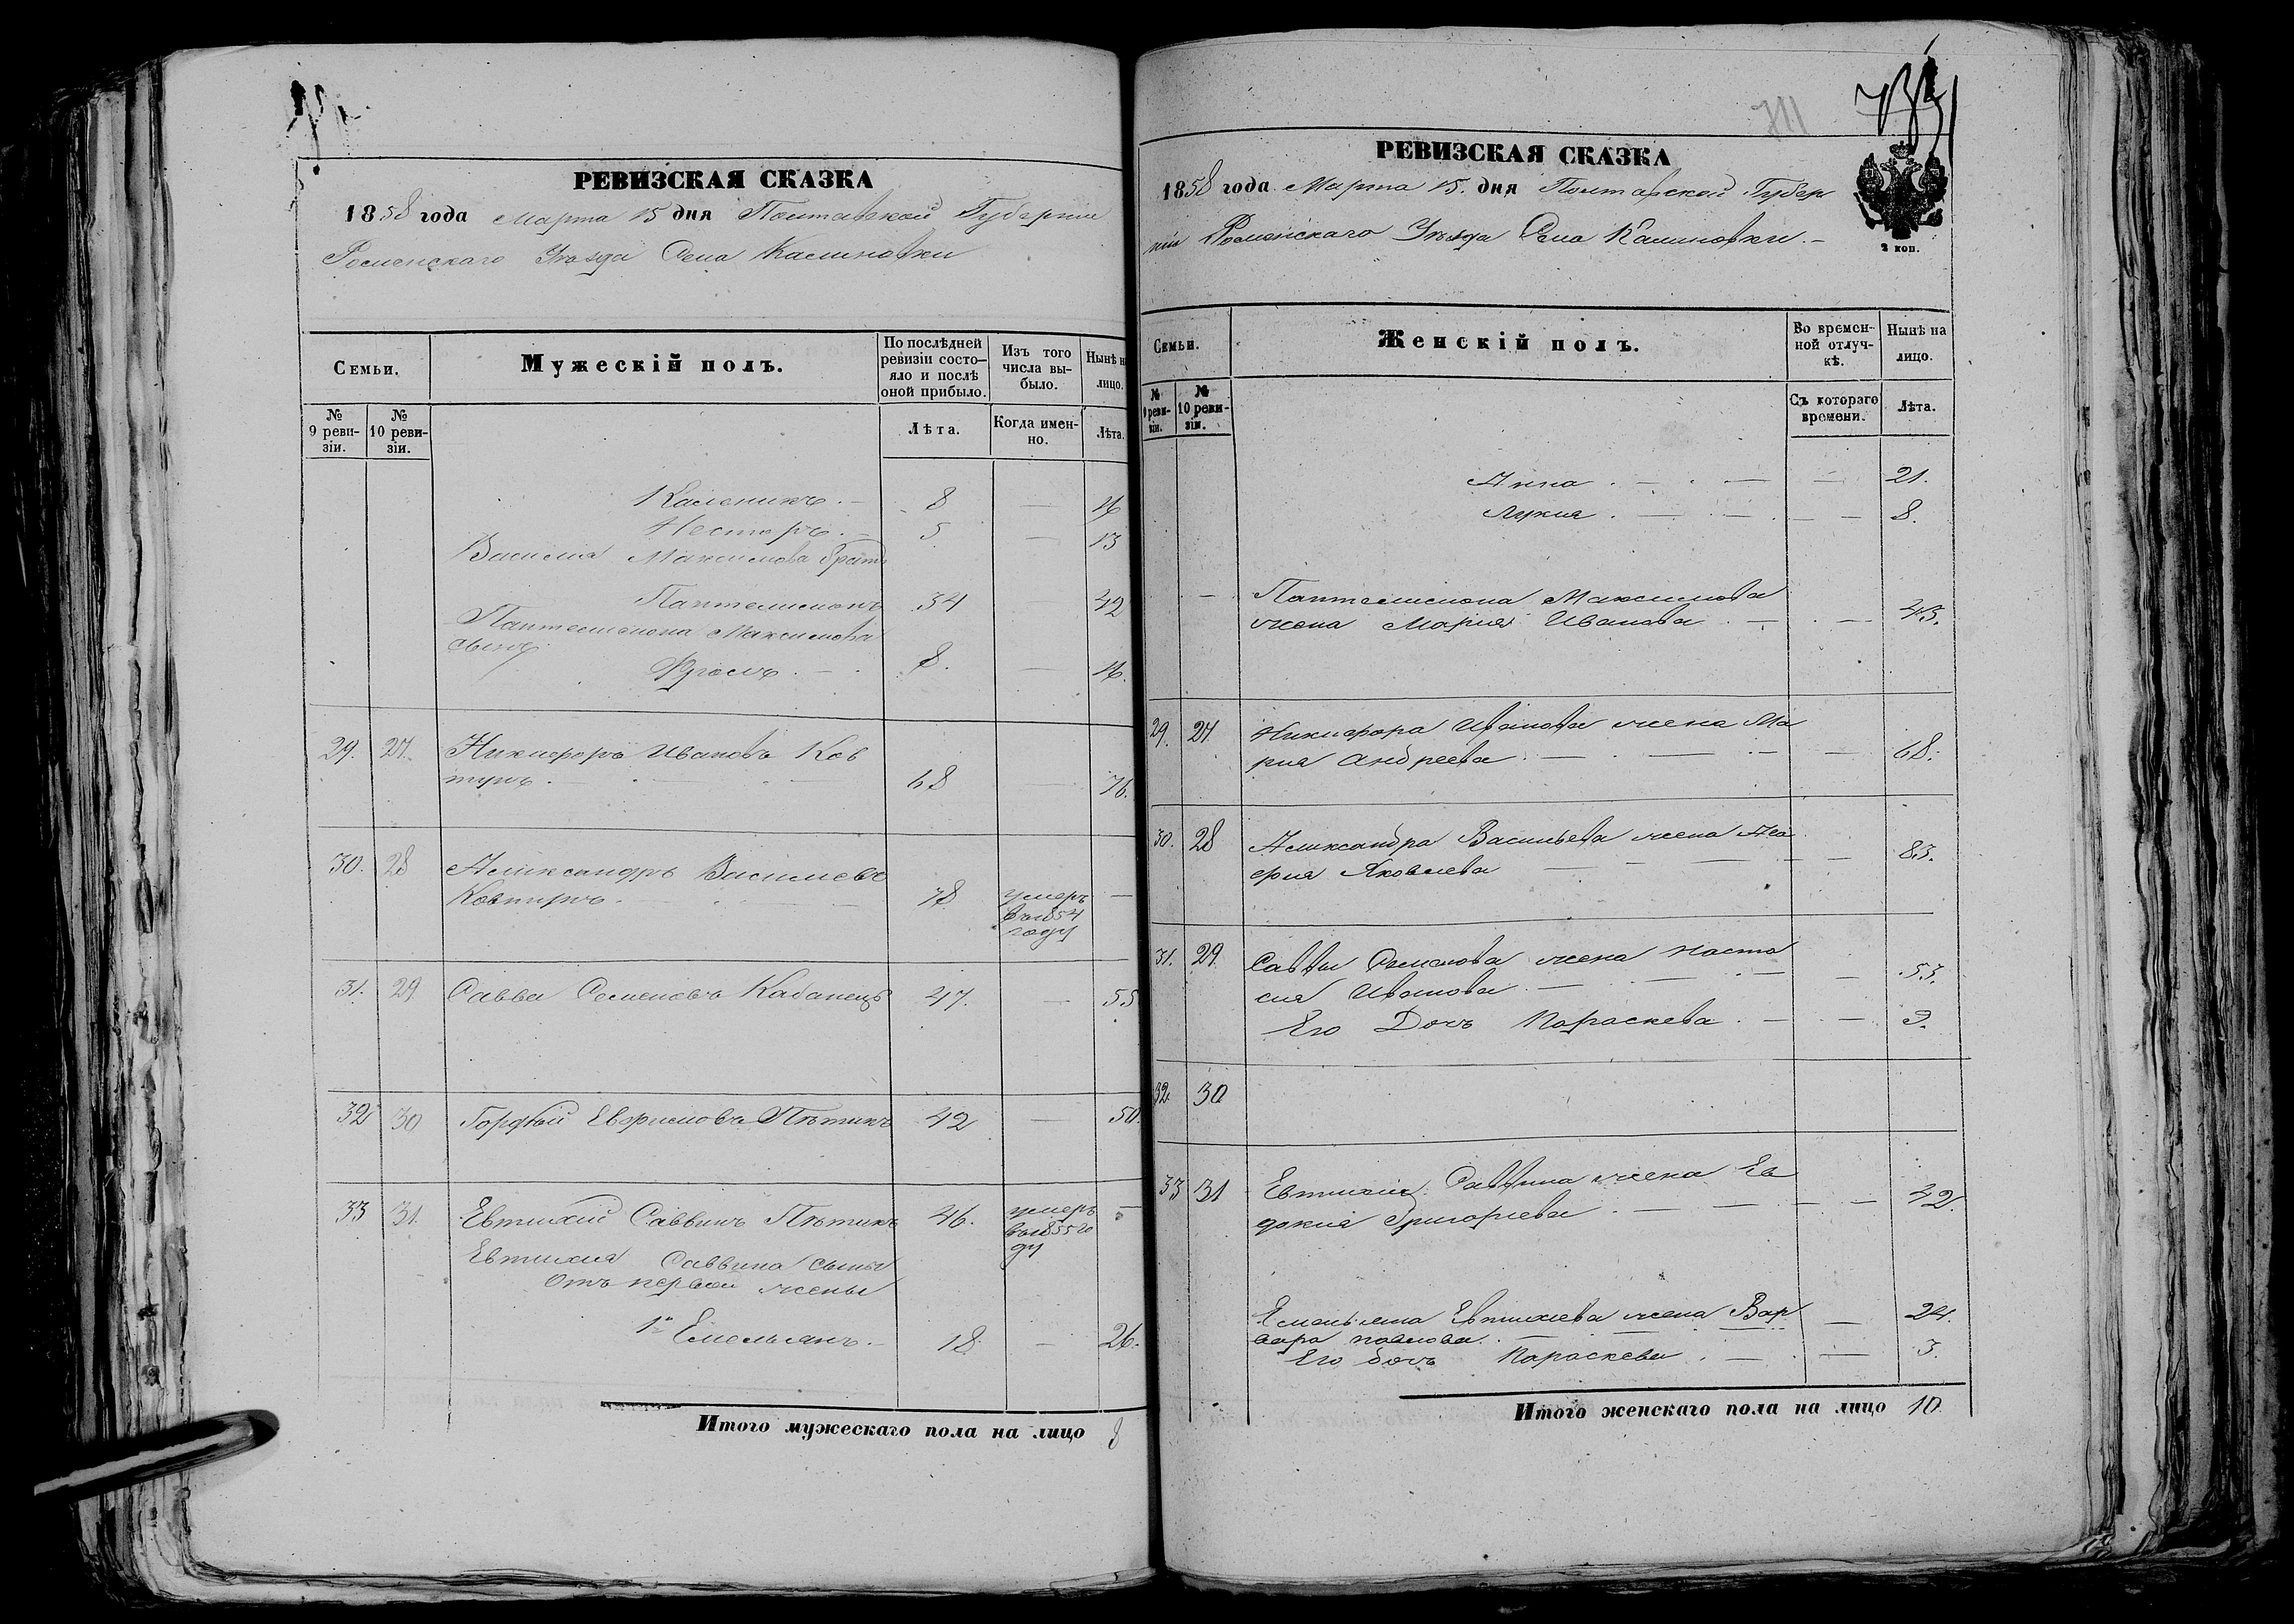 РЕВИЗСКАЯ СКАЗКА
1858 года Марта 15 дня Полтавской Губернии
Роменскаго Уѣзда Села Калиновки
Семьи.
Мужескій полъ.
По послѣдней ревизіи состо-
яло и послѣ оной прибыло.
Изъ того числа вы-
было.
Нынѣ на лицо.
№ 9 реви-
зіи.
№ 10 реви-
зіи.
Лѣта.
Когда имен-
но.
Лѣта.
Каленикъ. — 8 — 16
Несторъ. — 5 — 13
Василия Максимова братъ
Пантелимонъ 34 42
Пантелимона Максимова
сынъ
Фролъ. — 8. — 16.
29. 27. Никифоръ Ивановъ Ков
тунъ. — 68 — 76.
30. 28 Аликсандръ Василиевъ
Ковтунъ. — 78 умеръ —
въ 1854
году
31. 29 Савва Семеновъ Кабанецъ 47. — 55
32 30 Гордѣй Евфимовъ Пѣтикъ 42 — 50.
33 31. Евтихій Саввинъ Пѣтикъ 46. умеръ —
въ 1855 го
ду
Евтихия Саввина сыны
Отъ первой жены
1й Емельянъ. — 18. — 26.
Итого мужескаго пола на лицо 8
711
РЕВИЗСКАЯ СКАЗКА
1858 года Марта 15. дня Полтавской Губер
ніи Роменскаго Уѣзда Села Калиновки. —
2 коп.
Семьи.
Женскій полъ.
Во времен-
ной отлуч-
кѣ.
Нынѣ на лицо.
№ 9 реви-
зіи.
№ 10 реви-
зіи.
Съ котораго времени.
Лѣта.
Анна . — . — — 21.
Лукия . — . — . — — 8.
— Пантелимона Максимова
жена Мария Иванова . — . — 43.
29. 27 Никифора Иванова жена Ма
рия Андреева . — . — — 68.
30. 28 Аликсандра Васильева жена Ага
фия Яковлева — — — 83.
31. 29. Саввы Семенова жена Наста
сия Иванова . — . — — 53.
Его Дочь Параскева . — . — 9.
32. 30
33 31 Евтихия Саввина жена Ев
докия Григорьева . — — — — 42.
Емельяна Евтихиева жена Вар
вара Павлова . — — — 24.
Его дочь Параскева . — . — 3.
Итого женскаго пола на лицо 10.